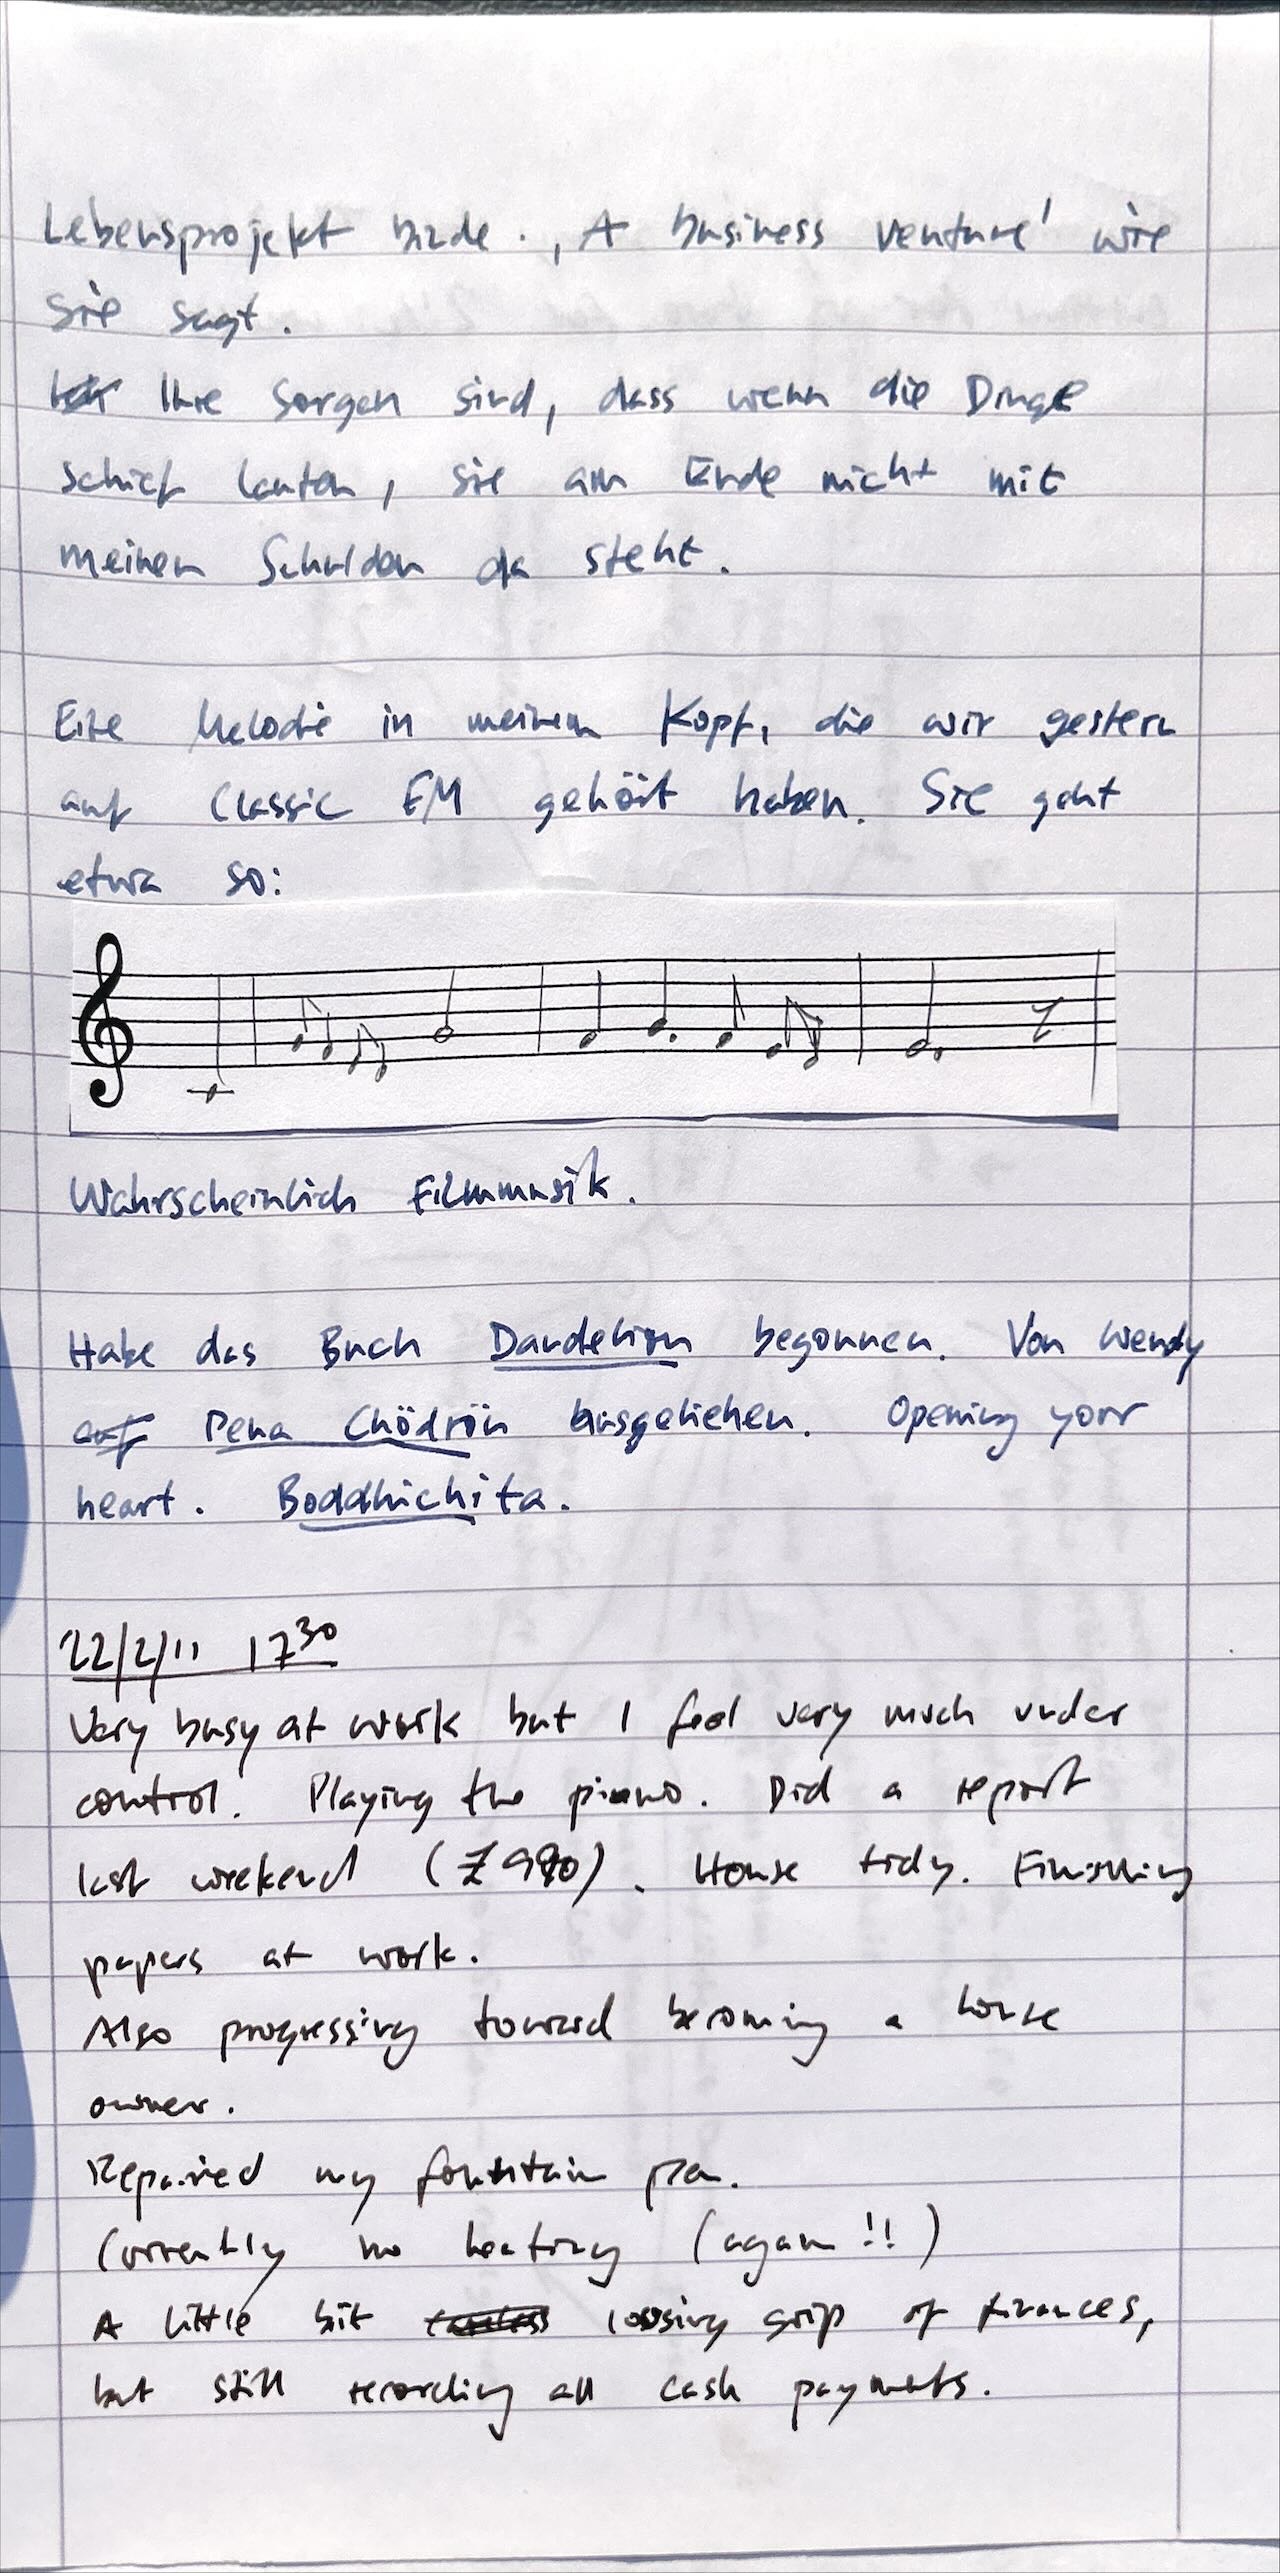 Lebensprojekt binde. ‚A business venture' wie
sie sagt.
Ihre Sorgen sind, dass wenn die Dinge
schief laufen, sie am Ende nicht mit
meinen Schulden da steht.
Eine Melodie in meinem Kopf, die wir gestern
auf Classic FM gehört haben. Sie geht
etwa so:
Wahrscheinlich Filmmusik.
Habe das Buch Dandelion begonnen. Von Wendy
auf Pema Chödrön ausgeliehen. Opening your
heart. Boddhichita.
22/2/11 17³⁰
Very busy at work but I feel very much under
control. Playing the piano. Did a report
last weekend (£ 980). House tidy. Finishing
papers at work.
Also progressing toward becoming a house
owner.
Repaired my fountain pen.
Currently no heating (again!!)
A little bit loosing grip of finances,
but still recording all cash payments.